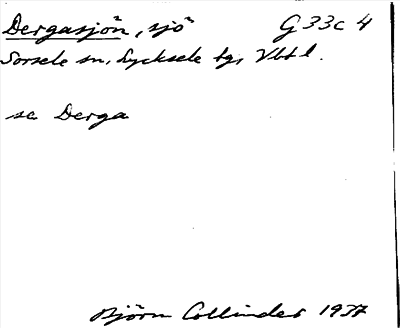 Dergasjön, sjö G 33c 4
Sorsele sn, Lycksele tg, Vbtl.
se Derga
Björn Collinder 1937